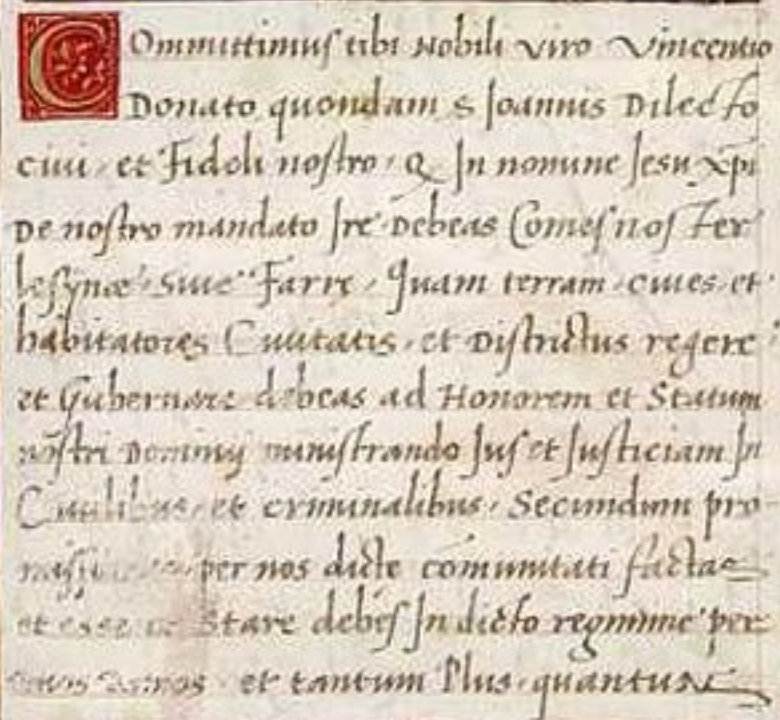 Committimus tibi Nobili viro Vincentio
Donato quondam s Joannis Dilecto
ciui et Fideli nostro. Q In nomine Jesu xp̄i
De nostro mandato Ire Debeas Comes nos Ter
lesynæ Siue Farre. Quam terram ciues et
habitatores Ciuitatis et Districtus regere
et Gubernare debeas ad Honorem et Statum
nostri Dominij ministrando Jus et Justiciam In
Ciuilibus et criminalibus. Secundum pro
per nos dicte cōmunitati factas
et esse Stare debes In dicto regimine per
Annos et tantum Plus quantum